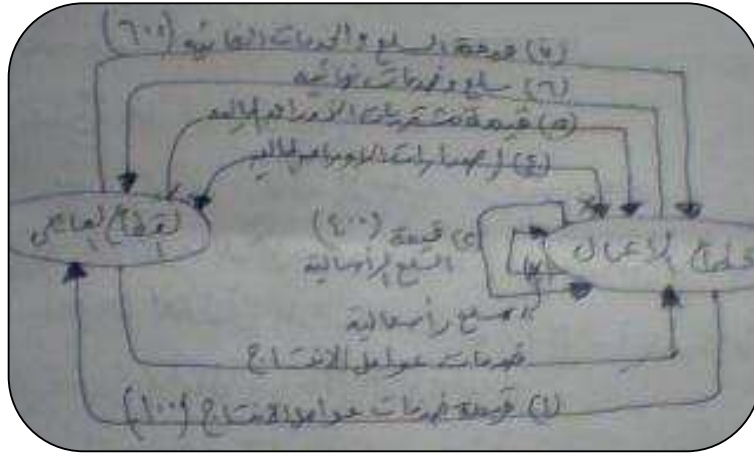 (٧) قيمة السلع والخدمات النهائية (٦٠٠)
(٦) سلع وخدمات نهائية
(٥) قيمة مشتريات الاوراق المالية
(٤) إصدارات الاوراق المالية
القطاع العائلي
قطاع الأعمال
قيمة (٤٠٠)
السلع الرأسمالية
سلع رأسمالية
خدمات عوامل الانتاج
(١) قيمة خدمات عوامل الانتاج (١٠٠٠)